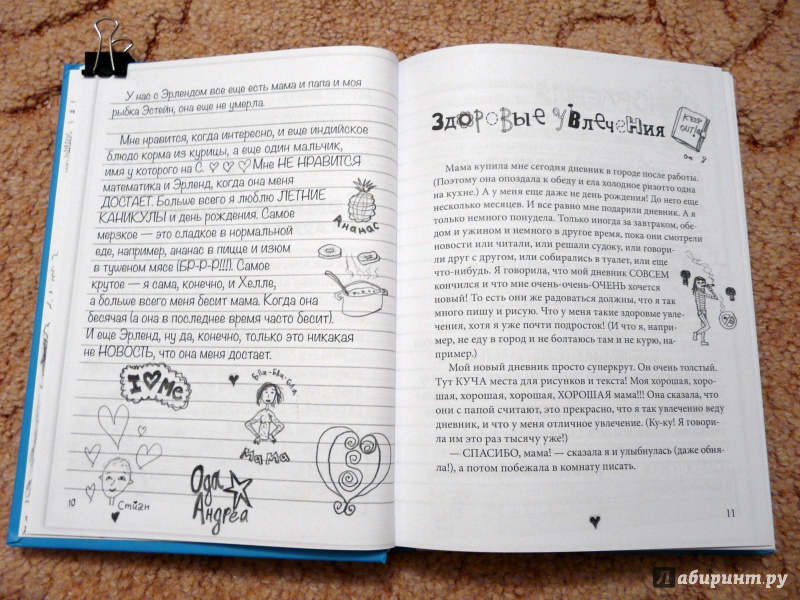 У нас с Эрлендом все еще есть мама и папа и моя
рыбка Эстейн, она еще не умерла.
Мне нравится, когда интересно, и еще индийское
блюдо корма из курицы, а еще один мальчик,
имя у которого на С. ♡ ♡ ♡ Мне НЕ НРАВИТСЯ
математика и Эрленд, когда она меня
ДОСТАЕТ. Больше всего я люблю ЛЕТНИЕ
КАНИКУЛЫ и день рождения. Самое
мерзкое — это сладкое в нормальной
еде, например, ананас в пицце и изюм
в тушеном мясе (БР-Р-Р!!!). Самое
крутое — я сама, конечно, и Хелле,
а больше всего меня бесит мама. Когда она
бесячая (а она в последнее время часто бесит).
И еще Эрленд, ну да, конечно, только это никакая
не НОВОСТЬ, что она меня достает.
Ананас
I ♡ Me
Бла-бла-бла
МаМа
Ода
Андреа
Стиан
10
Здоровые увлечения
KEEP
OUT!
Мама купила мне сегодня дневник в городе после работы.
(Поэтому она опоздала к обеду и ела холодное ризотто одна
на кухне.) А у меня еще даже не день рождения! До него еще
несколько месяцев. И все равно мне подарили дневник. А я
только немного понудела. Только иногда за завтраком, обе-
дом и ужином и немного в другое время, пока они смотрели
новости или читали, или решали судоку, или говори-
ли друг с другом, или собирались в туалет, или еще
что-нибудь. Я говорила, что мой дневник СОВСЕМ
кончился и что мне очень-очень-ОЧЕНЬ хочется
новый! То есть они же радоваться должны, что я так
много пишу и рисую. Что у меня такие здоровые увле-
чения, хотя я уже почти подросток! (И что я, напри-
мер, не еду в город и не болтаюсь там и не курю, на-
пример.)
Мой новый дневник просто суперкрут. Он очень толстый.
Тут КУЧА места для рисунков и текста! Моя хорошая, хоро-
шая, хорошая, хорошая, ХОРОШАЯ мама!!! Она сказала, что
они с папой считают, это прекрасно, что я так увлеченно веду
дневник, и что у меня отличное увлечение. (Ку-ку! Я говори-
ла им это раз тысячу уже!)
— СПАСИБО, мама! — сказала я и улыбнулась (даже обня-
ла!), а потом побежала в комнату писать.
11
Лабиринт.ру